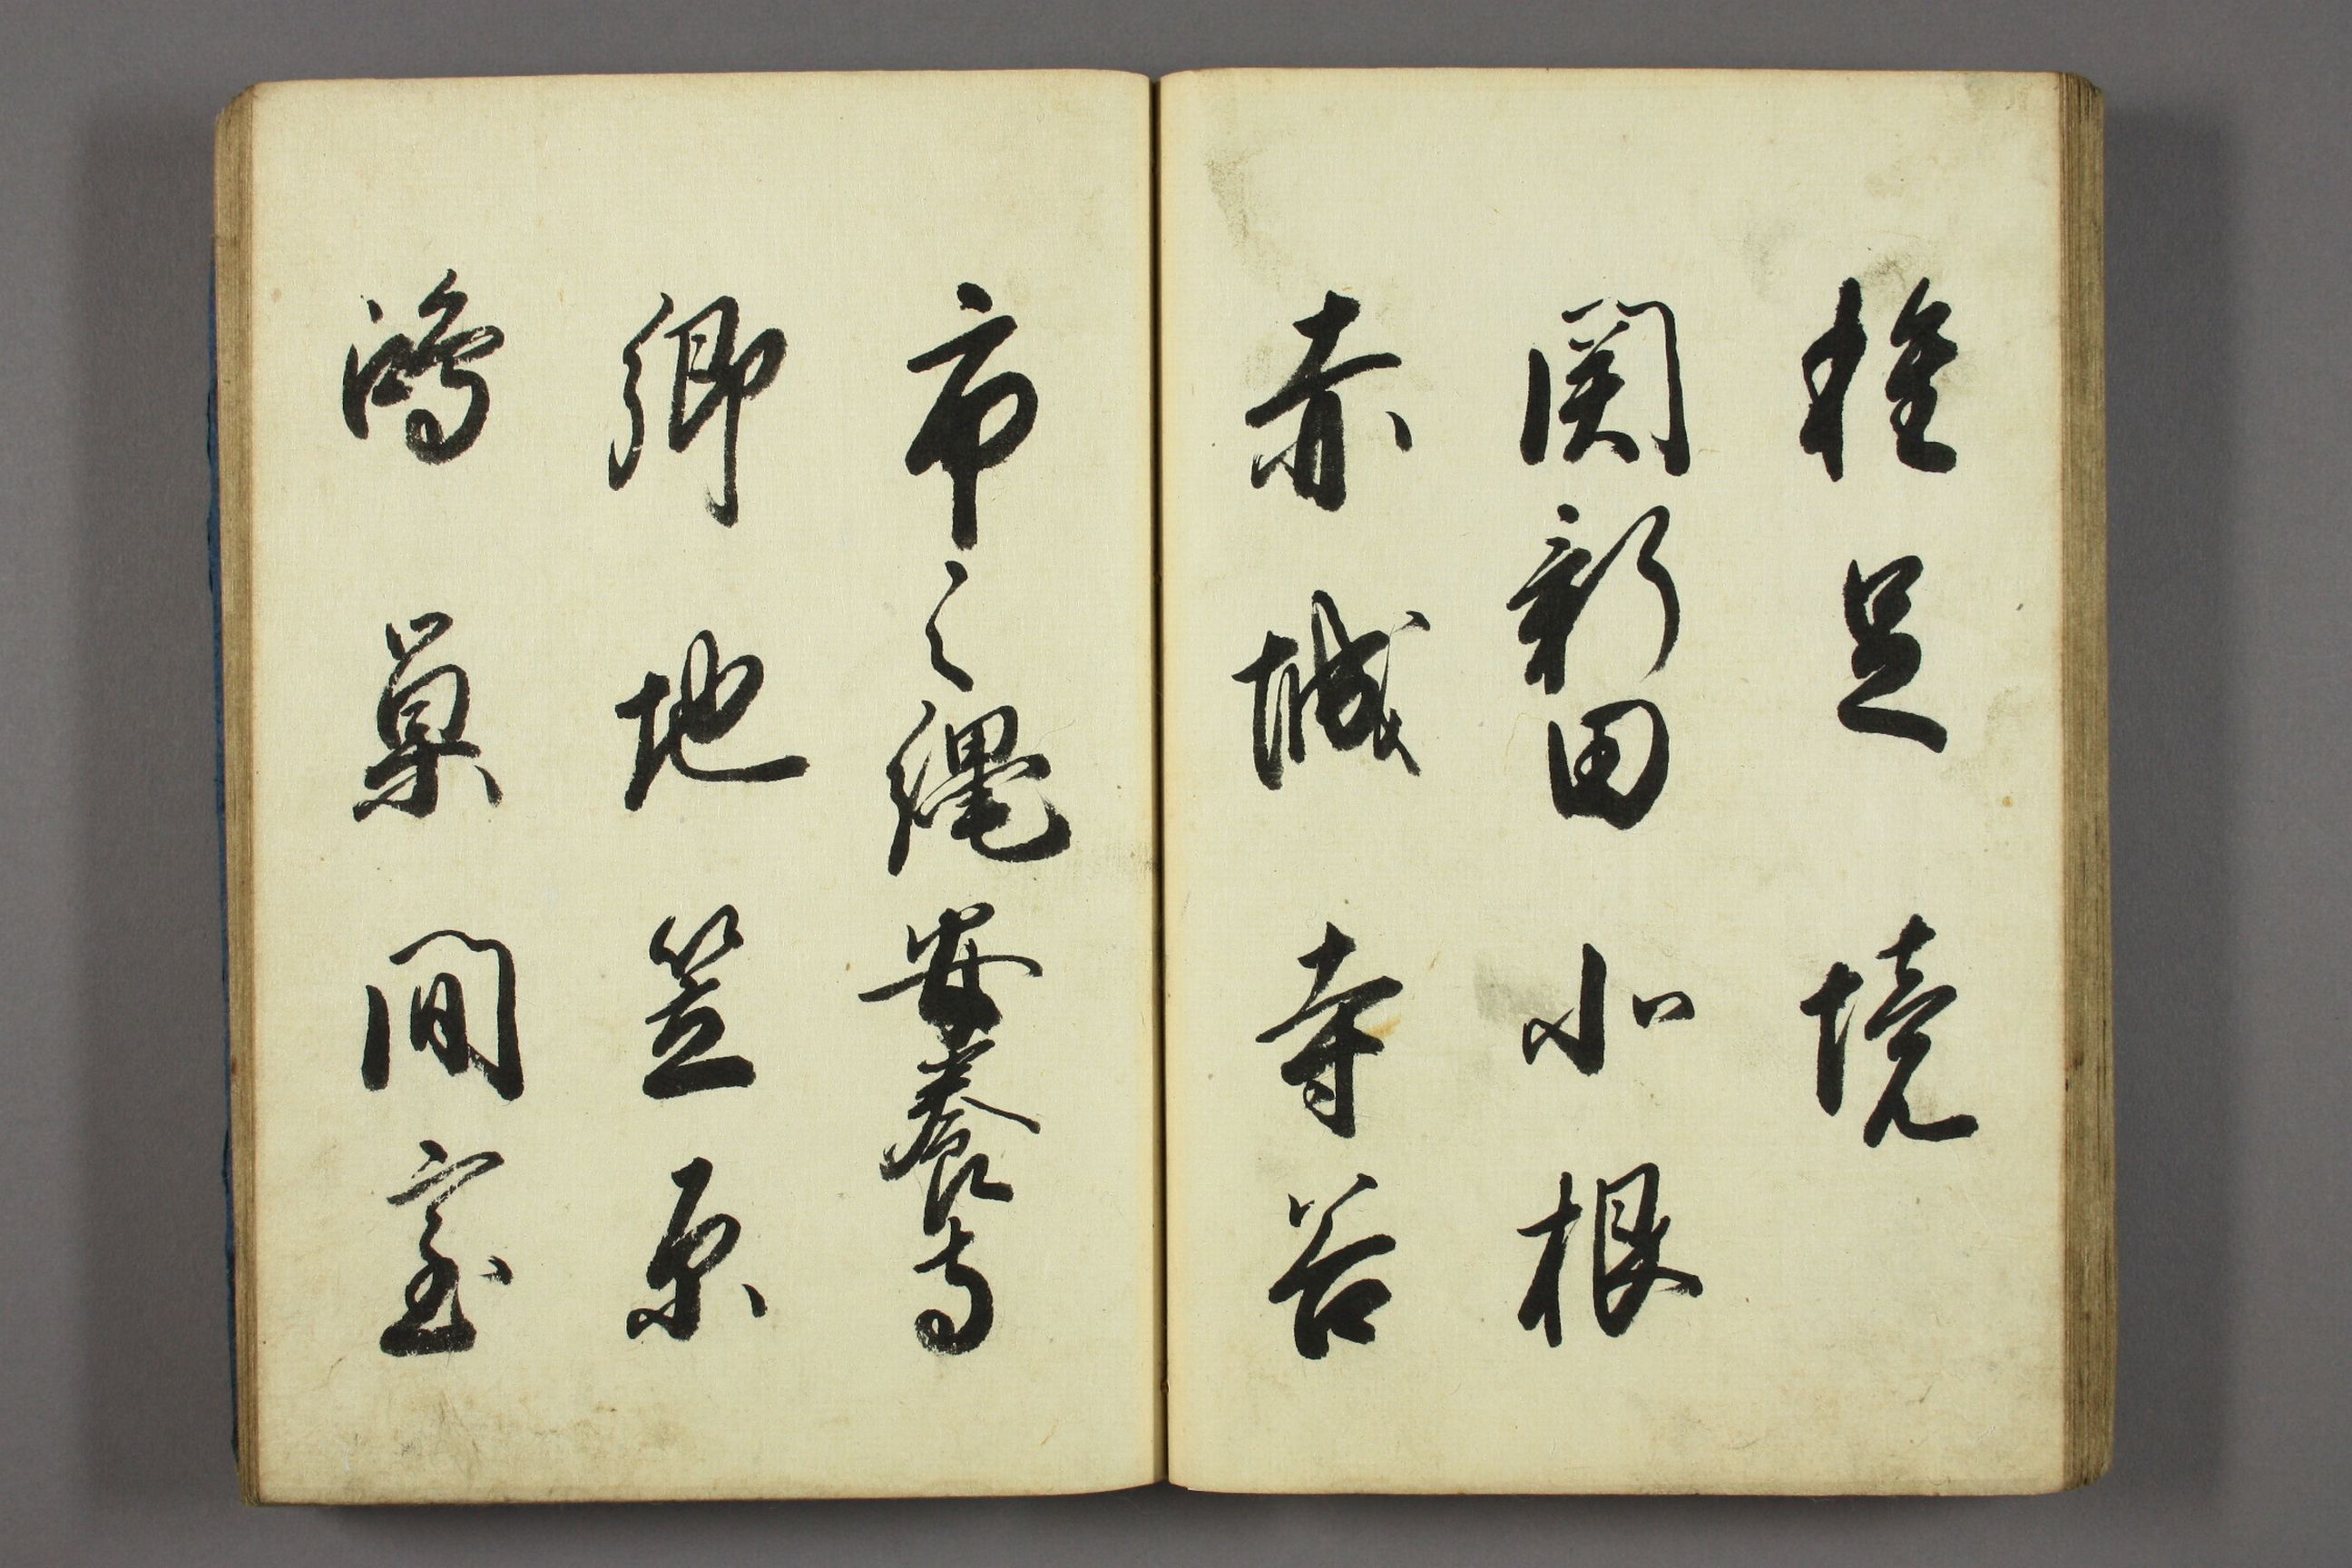 種足 境
関新田 小根
赤城 寺谷
市之縄安養寺
郷地 笠原
鴻巣 間室